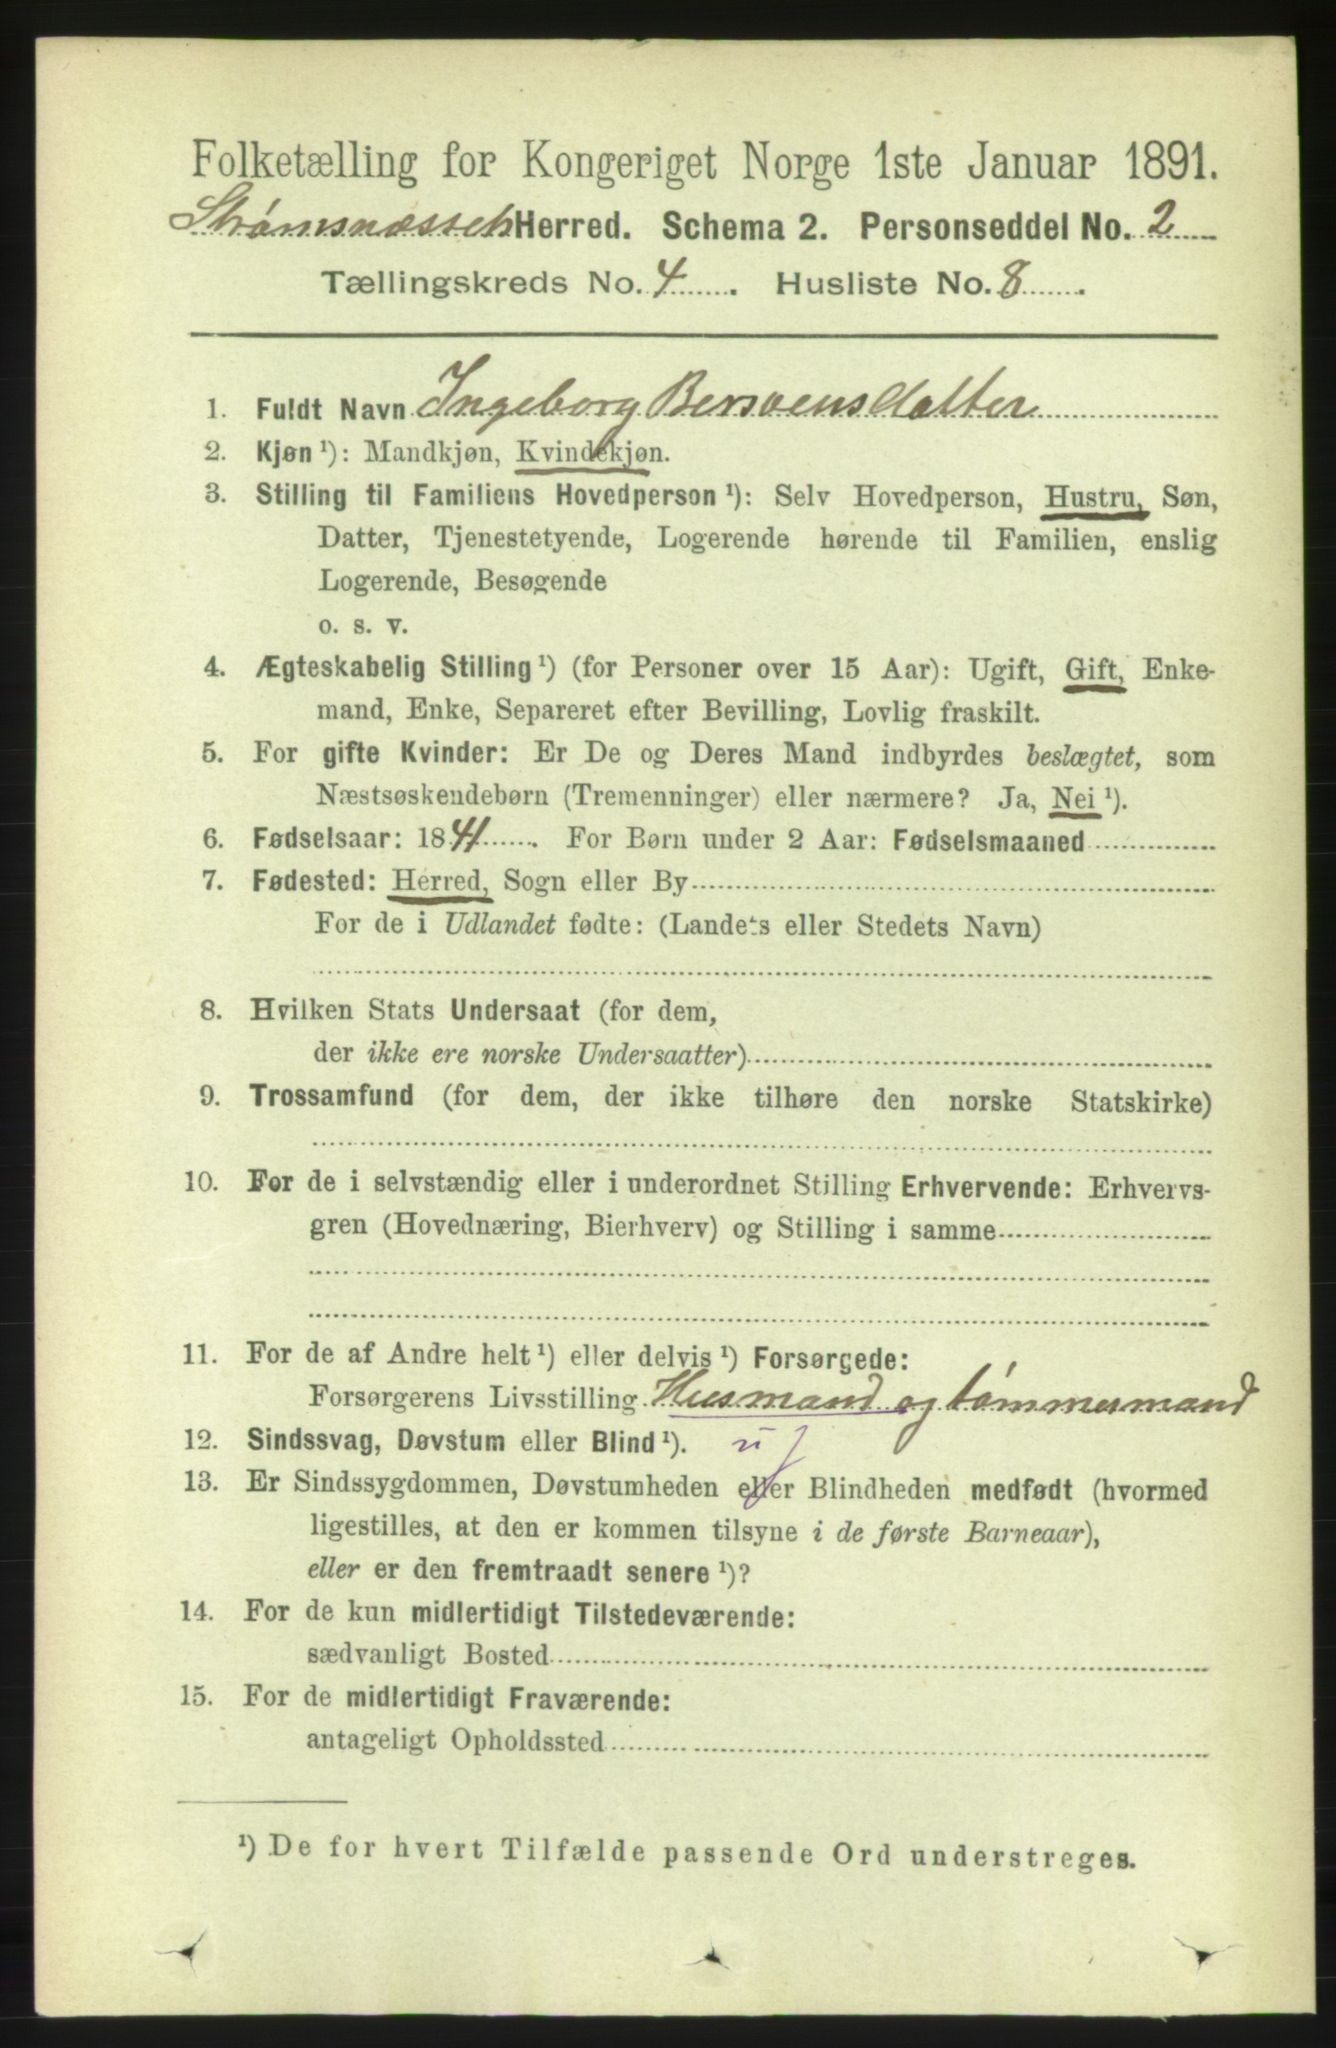 Folketælling for Kongeriget Norge 1ste Januar 1891.
Strømsnæssets Herred. Schema 2. Personseddel No. 2
Tællingskreds No. 4. Husliste No. 8.
1. Fuldt Navn Ingeborg Bersvensdatter
2. Kjøn ¹): Mandkjøn, Kvindekjøn.
3. Stilling til Familiens Hovedperson ¹): Selv Hovedperson, Hustru, Søn,
Datter, Tjenestetyende, Logerende hørende til Familien, enslig
Logerende, Besøgende
o. s. v.
4. Ægteskabelig Stilling ¹) (for Personer over 15 Aar): Ugift, Gift, Enke-
mand, Enke, Separeret efter Bevilling, Lovlig fraskilt.
5. For gifte Kvinder: Er De og Deres Mand indbyrdes beslægtet, som
Næstsøskendebørn (Tremenninger) eller nærmere? Ja, Nei ¹).
6. Fødselsaar: 1841. For Børn under 2 Aar: Fødselsmaaned
7. Fødested: Herred, Sogn eller By
For de i Udlandet fødte: (Landets eller Stedets Navn)
8. Hvilken Stats Undersaat (for dem,
der ikke ere norske Undersaatter)
9. Trossamfund (for dem, der ikke tilhøre den norske Statskirke)
10. For de i selvstændig eller i underordnet Stilling Erhvervende: Erhvervs-
gren (Hovednæring, Bierhverv) og Stilling i samme
11. For de af Andre helt ¹) eller delvis ¹) Forsørgede:
Forsørgerens Livsstilling Husmand og tømmermand
12. Sindssvag, Døvstum eller Blind ¹).
13. Er Sindssygdommen, Døvstumheden eller Blindheden medfødt (hvormed
ligestilles, at den er kommen tilsyne i de første Barneaar),
eller er den fremtraadt senere ¹)?
14. For de kun midlertidigt Tilstedeværende:
sædvanligt Bosted
15. For de midlertidigt Fraværende:
antageligt Opholdssted
¹) De for hvert Tilfælde passende Ord understreges.